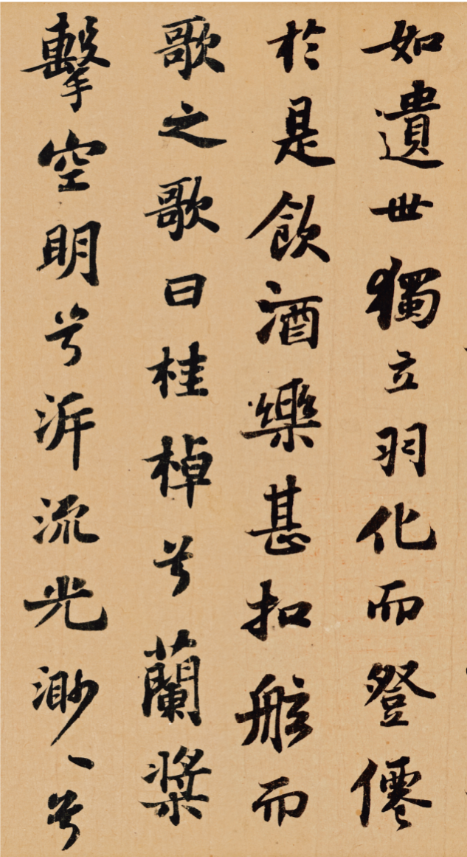 如遺世獨立羽化而登僊
於是飲酒樂甚扣舷而
歌之歌曰桂棹兮蘭槳
擊空明兮泝流光渺〻兮